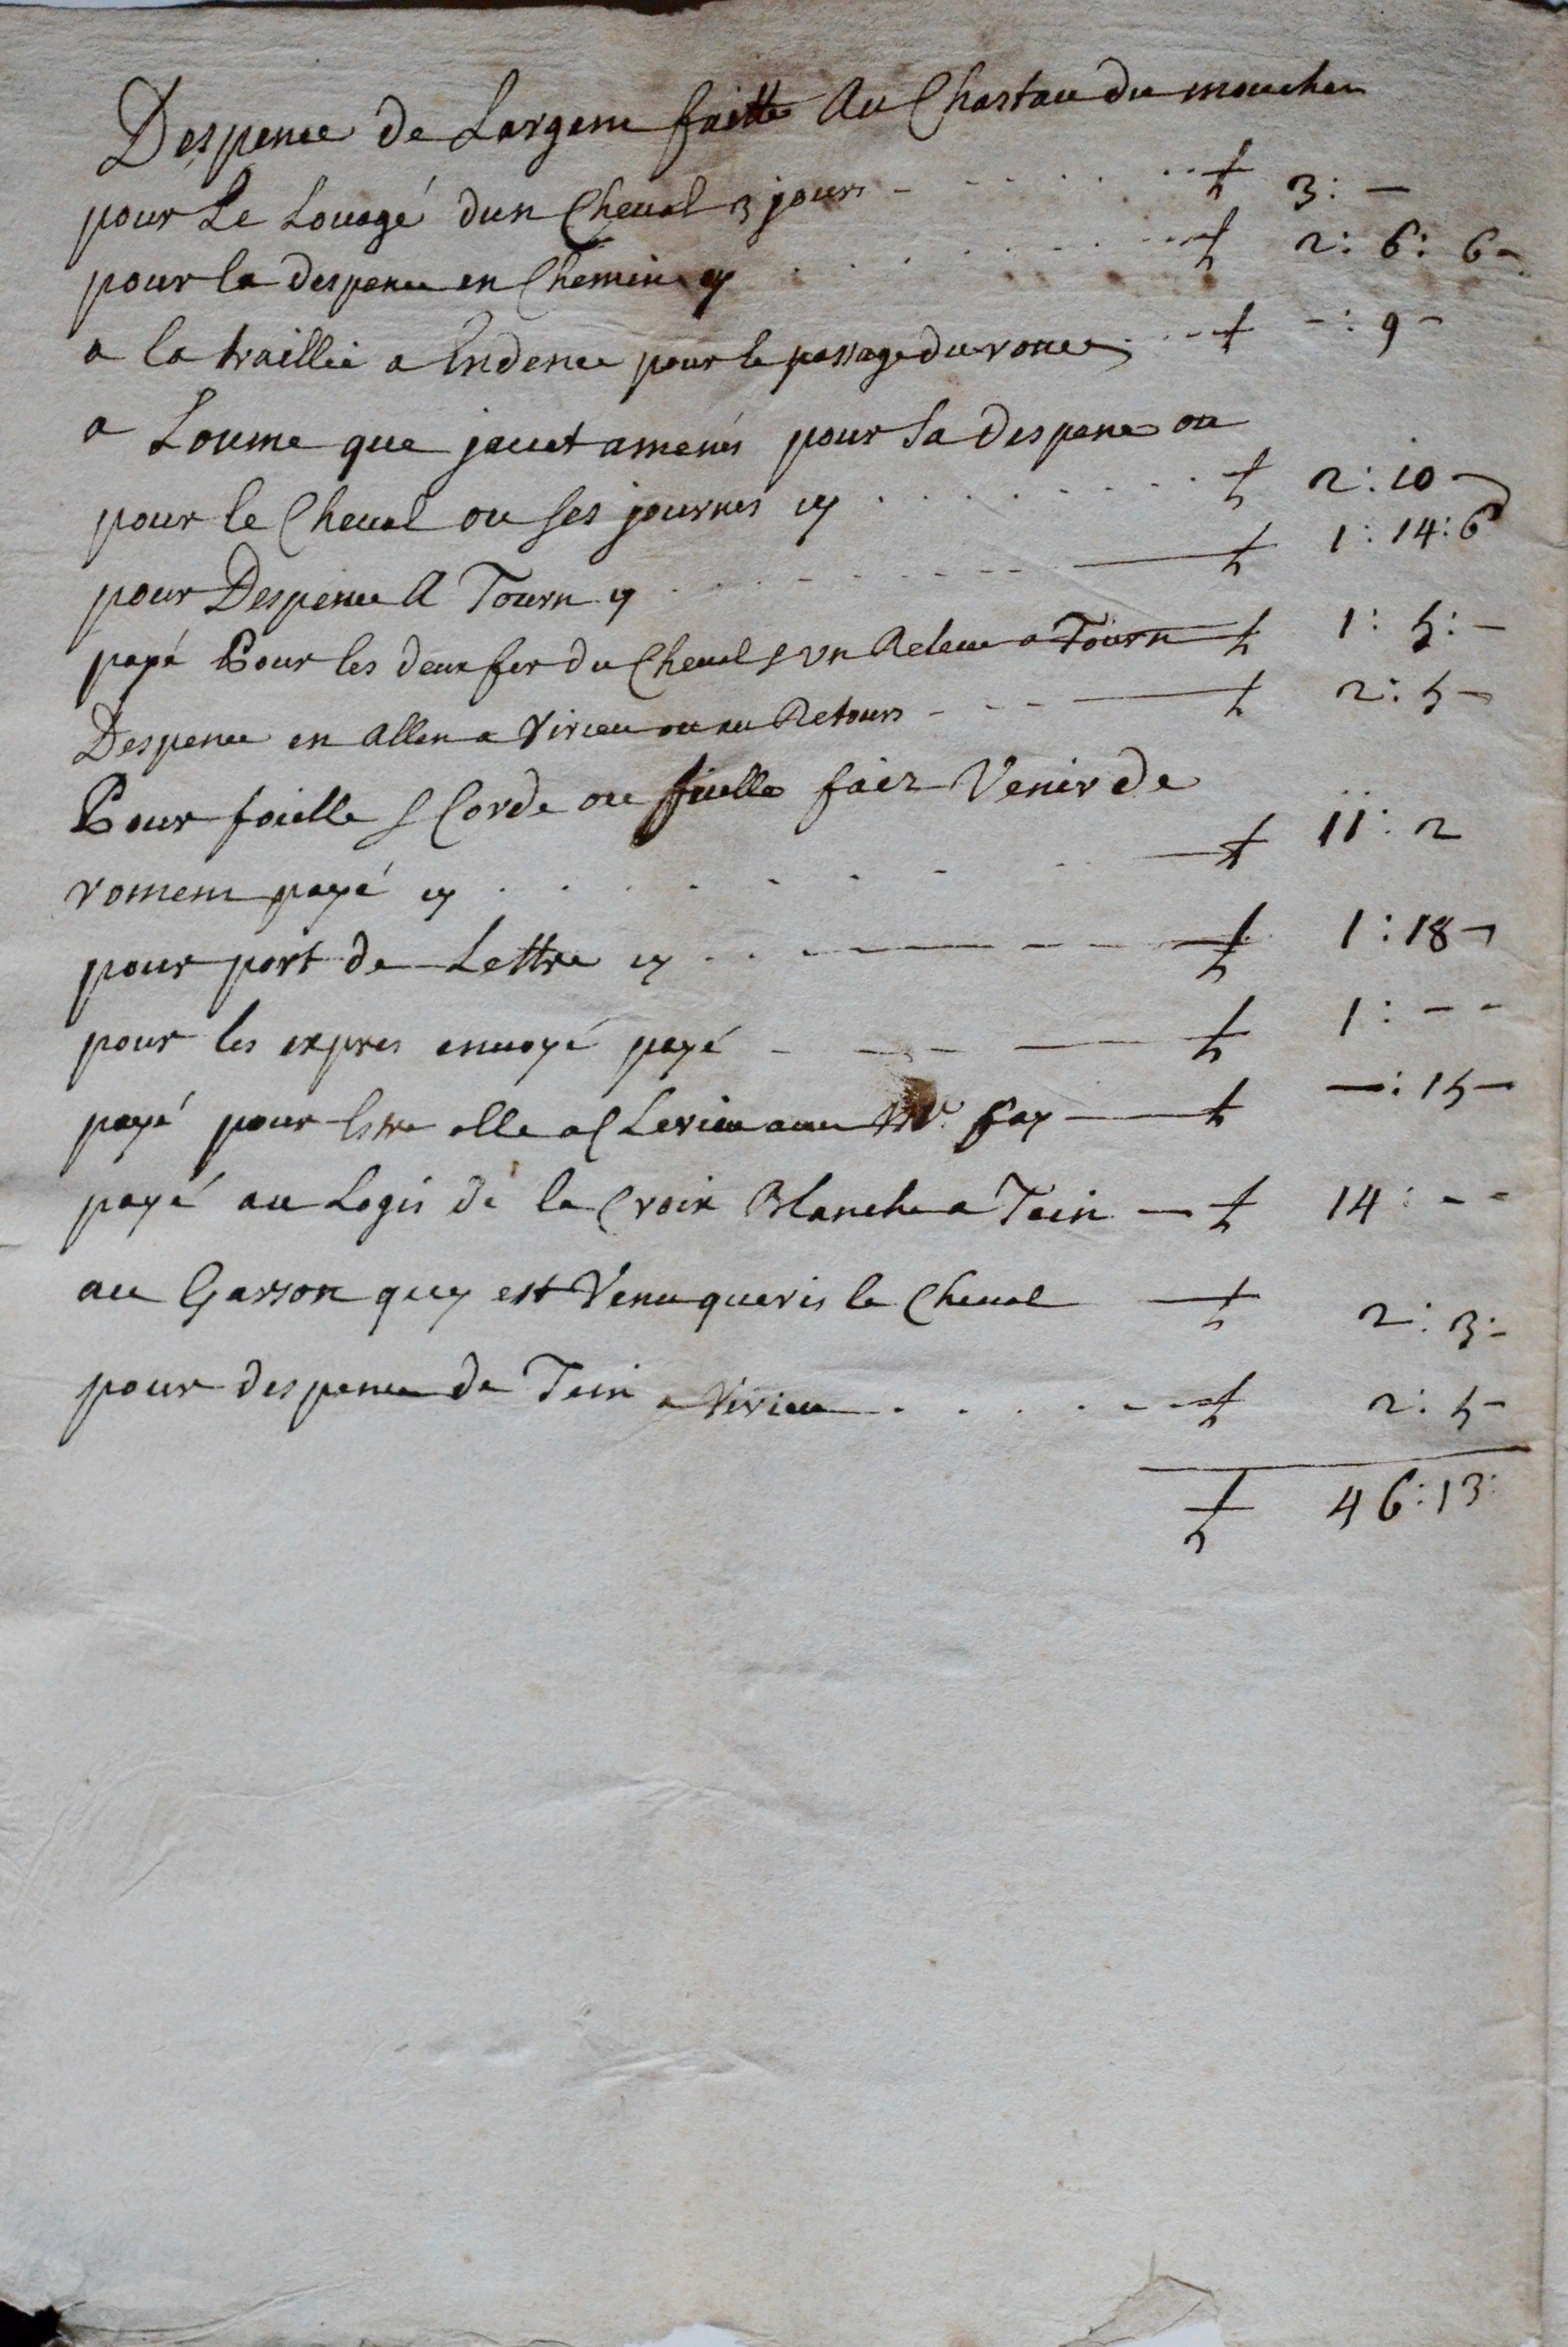 Despence de Largent faitte Au Chastau du moucher
pour Le Louagé dun Cheual 3 jours - ₶ 3: -
pour la despence en Chemin cy ₶ 2: 6: 6 -
a la traillie a Endence pour le passage du ronce ₶ -: 9 -
a Loume que jauet amenés pour Sa despence ou
pour le Cheual ou ses journes cy ₶ 2: 10 -
pour Despence A Tourn cy ₶ 1: 14: 6
payé Pour les deux fer du Cheual & vn Releue a Tourn ₶ 1: 5: -
Despence en allen a Virieu ou au Retours ₶ 2: 5 -
Pour foielle & Corde ou fielle faiz Venir de
romens payé cy ₶ 11: 2
pour port de Lettre cy ₶ 1: 18 -
pour les expres enuoyé payé ₶ 1: - -
payé pour Estre alle a Mr. fay ₶ -: 15 -
payé au Logis de la Croix Blanche a Tein ₶ 14: - -
au Garson quy est Venu queris le Cheual ₶ 2: 3: -
pour despence de Tein a Virieu ₶ 2: 5 -
₶ 46: 13: